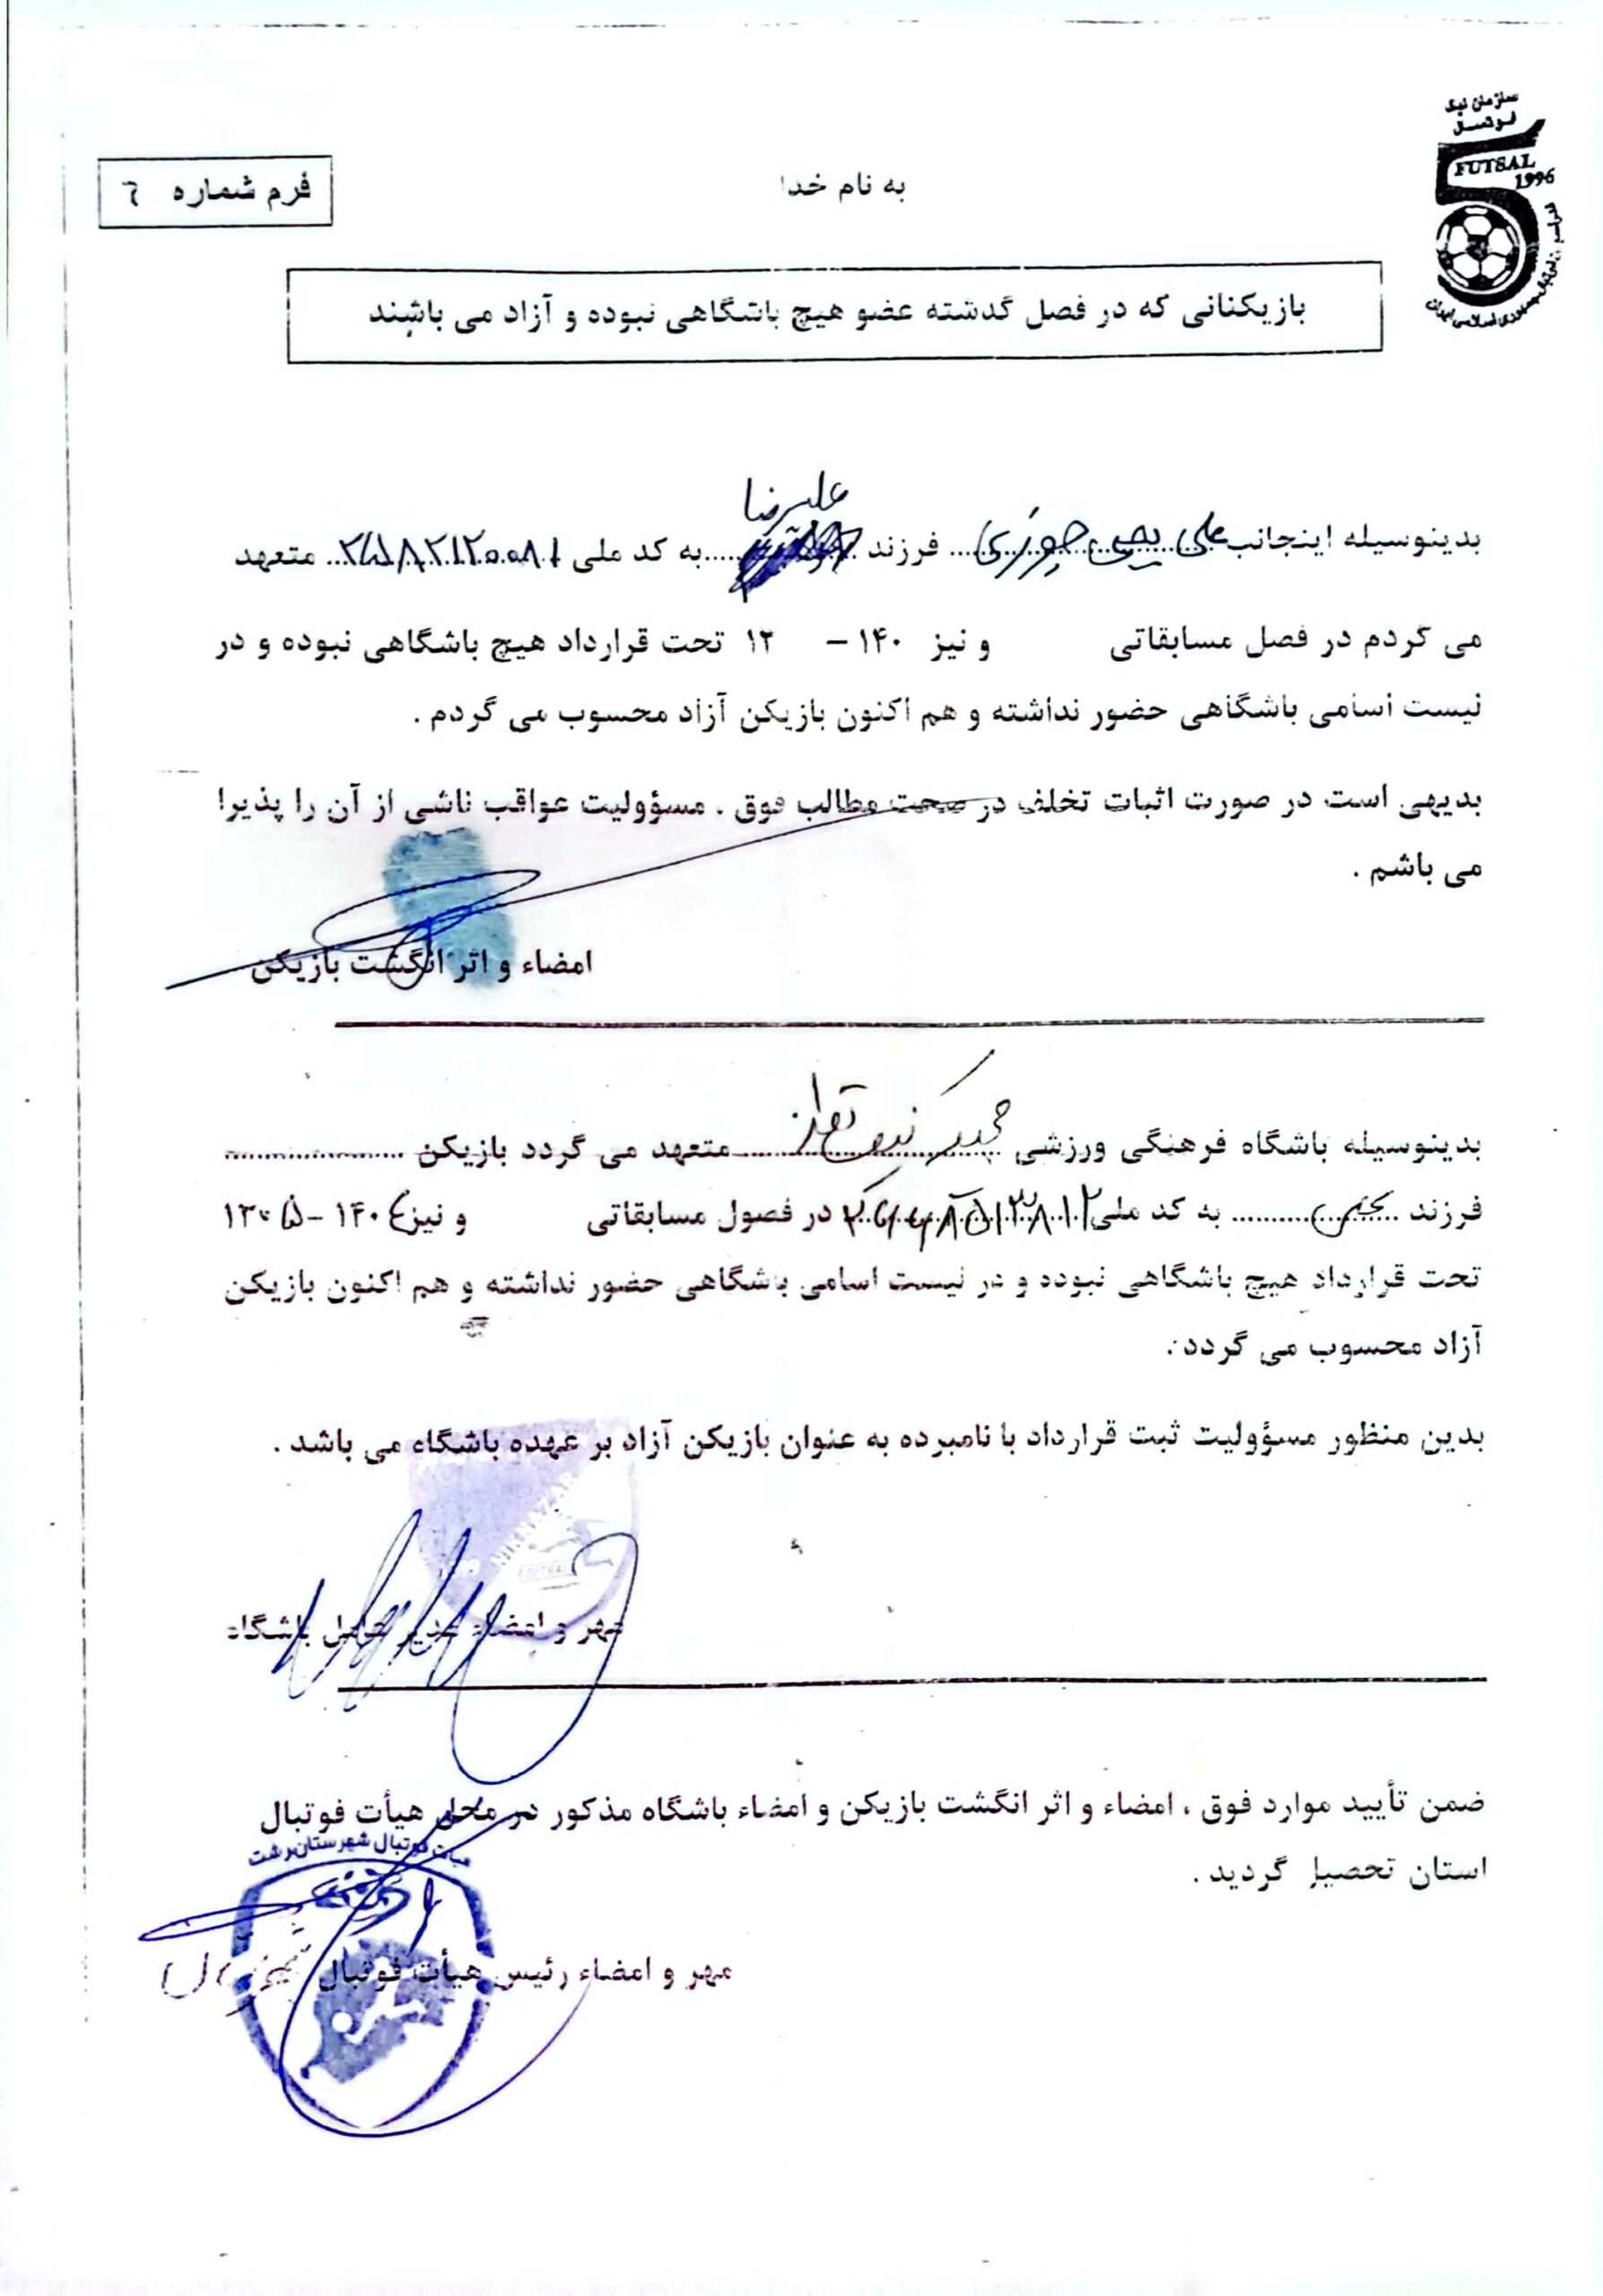 سازمان لیگ
فوتسال
FUTSAL
1996
فدراسیون فوتبال جمهوری اسلامی ایران
به نام خدا
فرم شماره ٦
بازیکنانی که در فصل گذشته عضو هیچ باشگاهی نبوده و آزاد می باشند
علیرضا
بدینوسیله اینجانب علی فرزند به کد ملی متعهد
می گردم در فصل مسابقاتی و نیز ۱۴۰ – ۱۳ تحت قرارداد هیچ باشگاهی نبوده و در
لیست اسامی باشگاهی حضور نداشته و هم اکنون بازیکن آزاد محسوب می گردم .
بدیهی است در صورت اثبات تخلف در صحت مطالب فوق . مسؤولیت عواقب ناشی از آن را پذیرا
می باشم .
امضاء و اثر انگشت بازیکن
بدینوسیله باشگاه فرهنگی ورزشی متعهد می گردد بازیکن
فرزند به کد ملی در فصول مسابقاتی و نیز ۱۴۰۴ – ۱۳۰۵
تحت قرارداد هیچ باشگاهی نبوده و در لیست اسامی باشگاهی حضور نداشته و هم اکنون بازیکن
آزاد محسوب می گردد .
بدین منظور مسؤولیت ثبت قرارداد با نامبرده به عنوان بازیکن آزاد بر عهده باشگاه می باشد .
NIKNAZAR
FOOTBALL
مهر و امضاء مدیر عامل باشگاه
ضمن تأیید موارد فوق ، امضاء و اثر انگشت بازیکن و امضاء باشگاه مذکور در محل هیأت فوتبال
استان تحصیل گردید .
هیات فوتبال شهرستان رشت
مهر و امضاء رئیس هیأت فوتبال